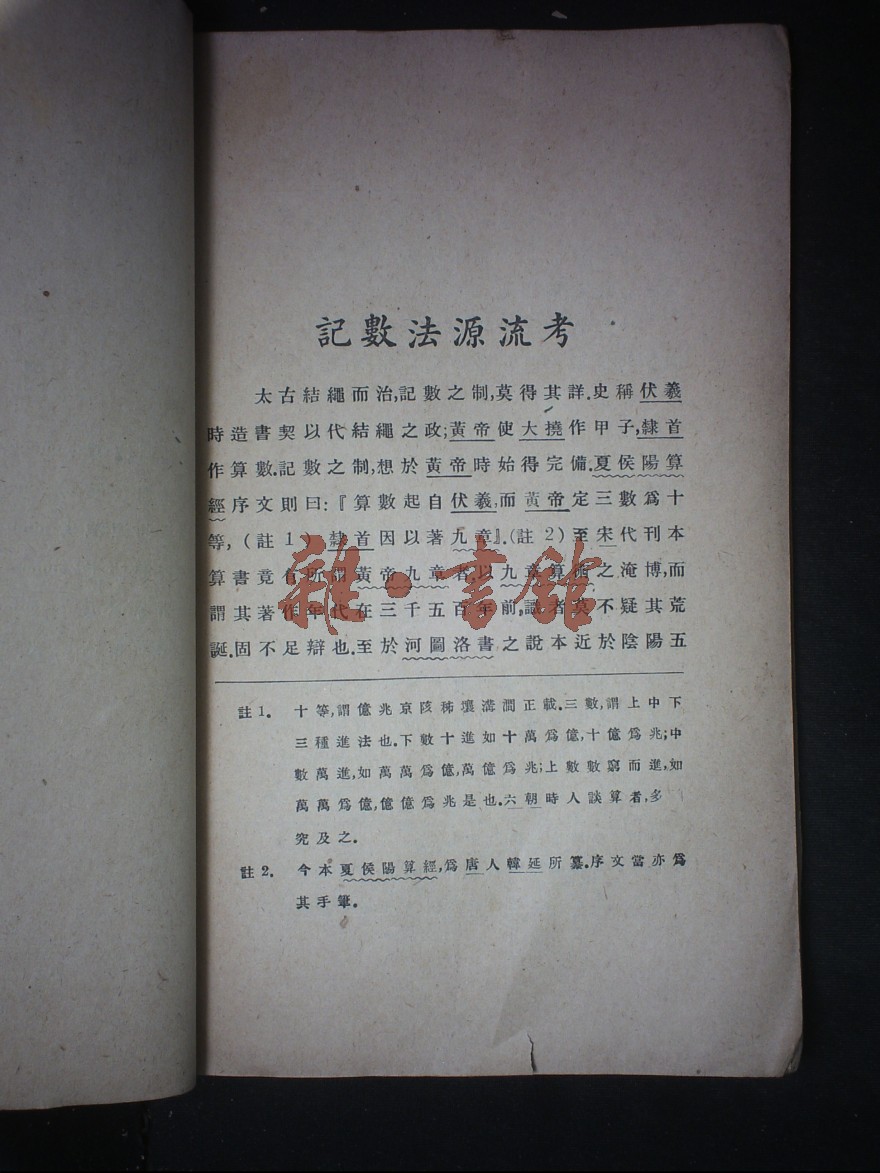 記數法源流考
太古結繩而治,記數之制,莫得其詳.史稱伏羲
時造書契以代結繩之政;黃帝使大撓作甲子,隸首
作算數.記數之制,想於黃帝時始得完備.夏侯陽算
經序文則曰:『算數起自伏羲,而黃帝定三數爲十
等,(註1) 隸首因以著九章』.(註2)至宋代刊本
算書竟有所謂黃帝九章者.以九章算術之淹博,而
謂其著作年代在三千五百年前,識者莫不疑其荒
誕.固不足辯也.至於河圖洛書之說本近於陰陽五
註1. 十等,謂億兆京陔秭壤溝澗正載.三數,謂上中下
三種進法也.下數十進如十萬爲億,十億爲兆;中
數萬進,如萬萬爲億,萬億爲兆;上數數窮而進,如
萬萬爲億,億億爲兆是也.六朝時人談算者,多
究及之.
註2. 今本夏侯陽算經,爲唐人韓延所纂.序文當亦爲
其手筆.
雜·書館